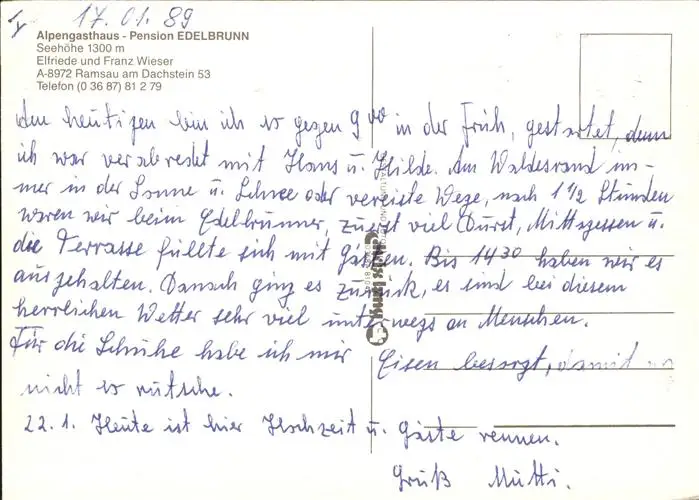 17.01.89
Alpengasthaus - Pension EDELBRUNN
Seehöhe 1300 m
Elfriede und Franz Wieser
A-8972 Ramsau am Dachstein 53
Telefon (0 36 87) 81 2 79
den heutigen bin ich so gegen 9 00 in der Früh, gestartet, denn
ich war verabredet mit Hans u. Hilde. Am Waldesrand im-
mer in der Sonne u. Schnee oder vereiste Wege, nach 1 1/2 Stunden
waren wir beim Edelbrunner, zuerst viel Durst, Mittagessen u.
die Terrasse füllte sich mit Gästen. Bis 14 30 haben wir es
ausgehalten. Danach ging es zurück, es sind bei diesem
herrlichen Wetter sehr viel unterwegs an Menschen.
Für die Schuhe habe ich mir Eisen besorgt, damid
nicht so rutsche.
22.1. Heute ist hier Hochzeit u. Gäste rennen.
Gruß Mutti.